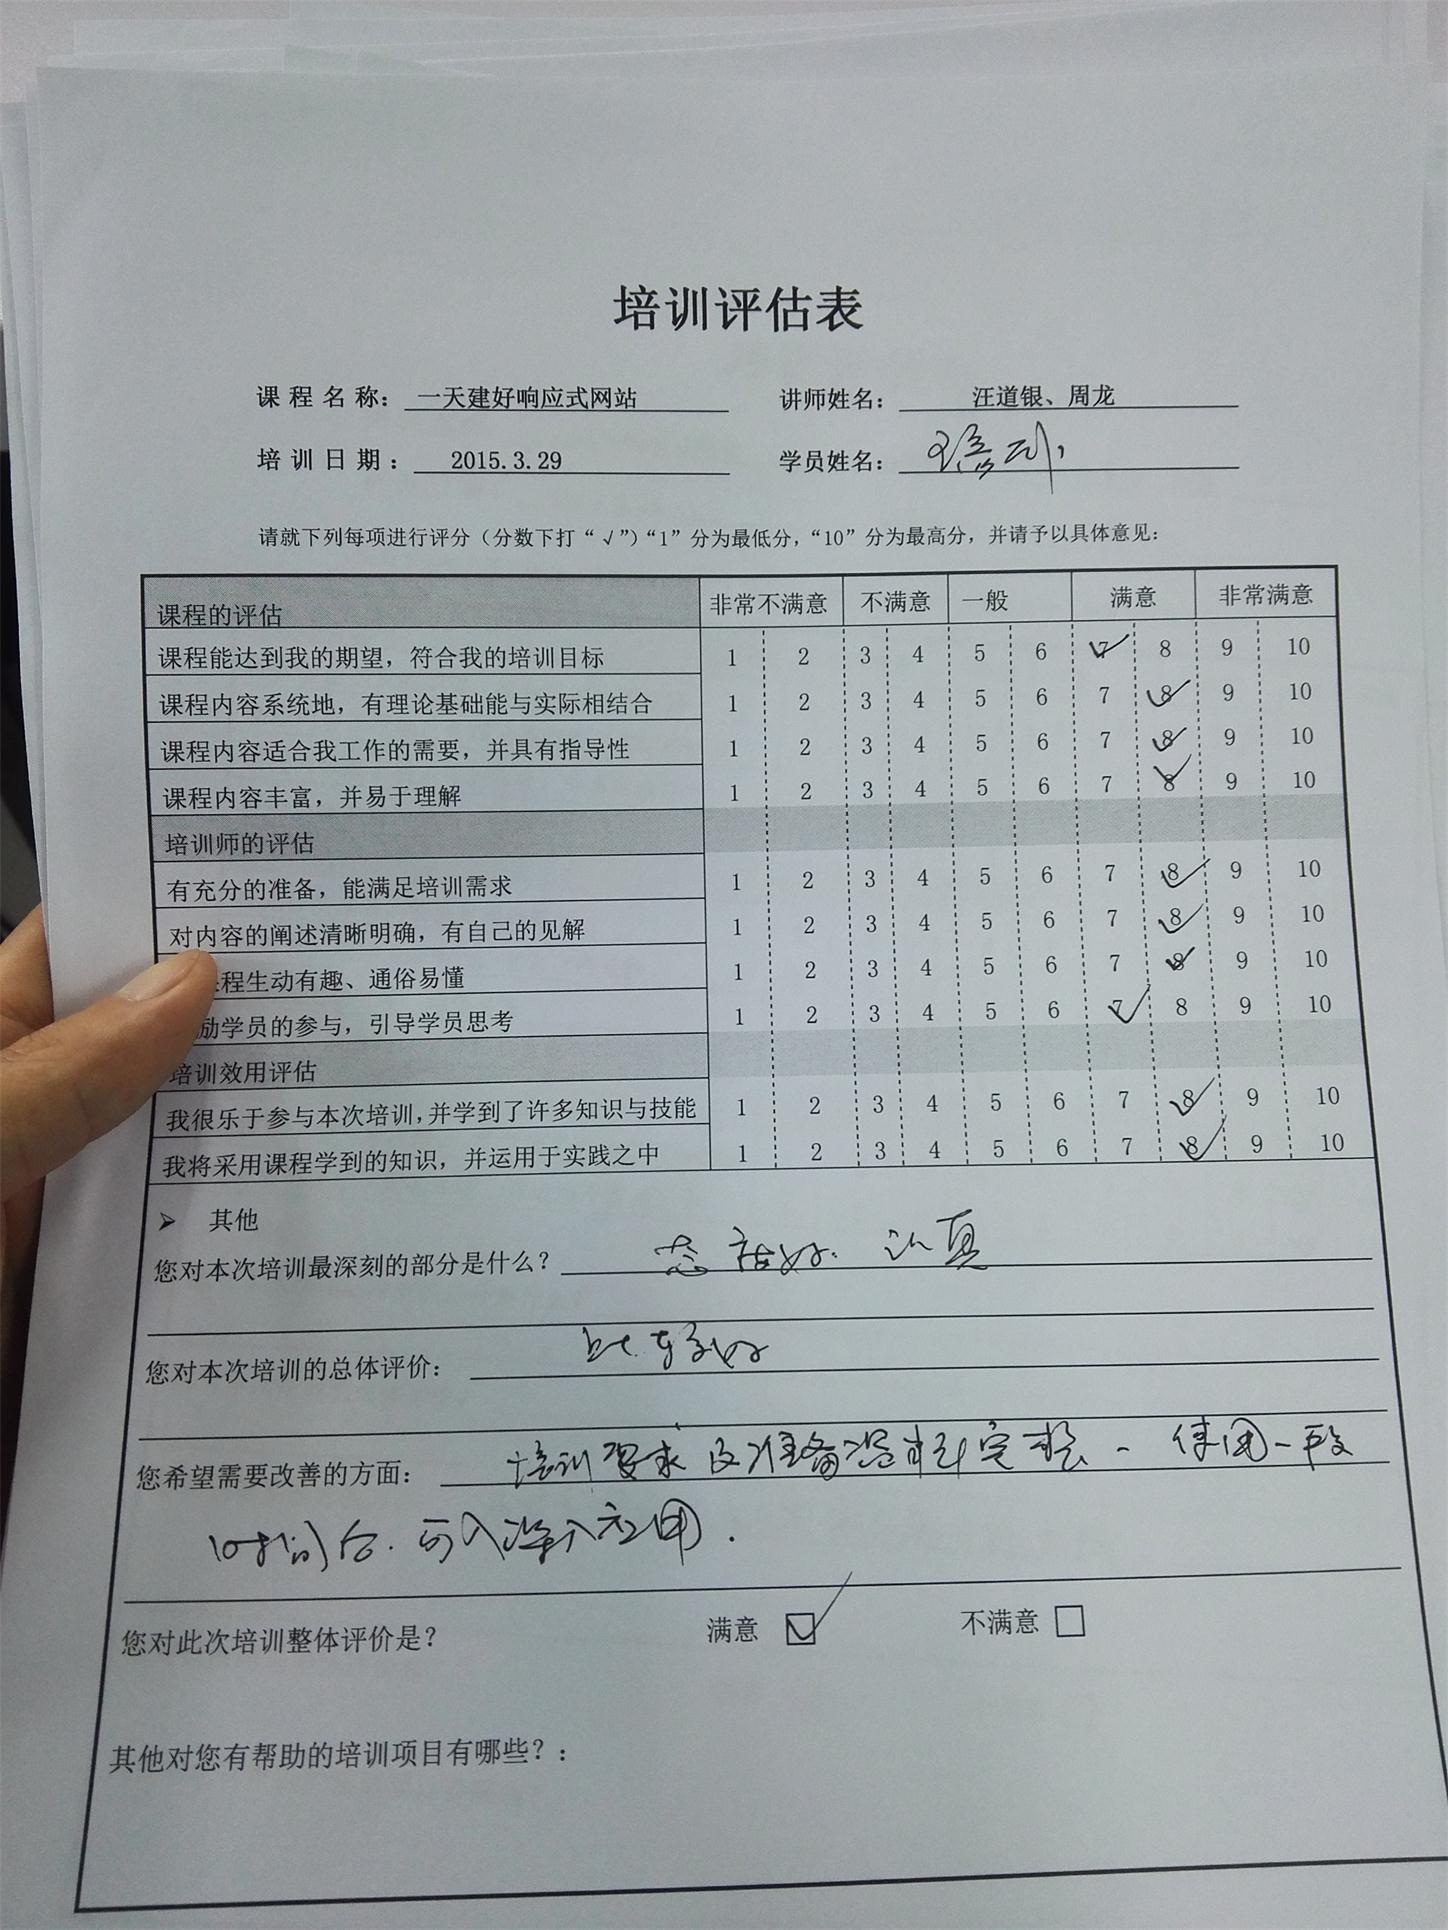 培训评估表
课程名称： 一天建好响应式网站 讲师姓名： 汪道银、周龙
培训日期： 2015.3.29 学员姓名：
请就下列每项进行评分（分数下打“√”）“1”分为最低分，“10”分为最高分，并请予以具体意见：
课程的评估 非常不满意 不满意 一般 满意 非常满意
课程能达到我的期望，符合我的培训目标 1 2 3 4 5 6 7 8 9 10
课程内容系统地，有理论基础能与实际相结合 1 2 3 4 5 6 7 8 9 10
课程内容适合我工作的需要，并具有指导性 1 2 3 4 5 6 7 8 9 10
课程内容丰富，并易于理解 1 2 3 4 5 6 7 8 9 10
培训师的评估
有充分的准备，能满足培训需求 1 2 3 4 5 6 7 8 9 10
对内容的阐述清晰明确，有自己的见解 1 2 3 4 5 6 7 8 9 10
程生动有趣、通俗易懂 1 2 3 4 5 6 7 8 9 10
励学员的参与，引导学员思考 1 2 3 4 5 6 7 8 9 10
培训效用评估
我很乐于参与本次培训，并学到了许多知识与技能 1 2 3 4 5 6 7 8 9 10
我将采用课程学到的知识，并运用于实践之中 1 2 3 4 5 6 7 8 9 10
➢ 其他
您对本次培训最深刻的部分是什么？ 态度好. 认真
您对本次培训的总体评价： 比较好
您希望需要改善的方面： 培训要求及准备资料完整 使用一段
时间后. 可入深入应用.
您对此次培训整体评价是？ 满意 ☑ 不满意 □
其他对您有帮助的培训项目有哪些？：